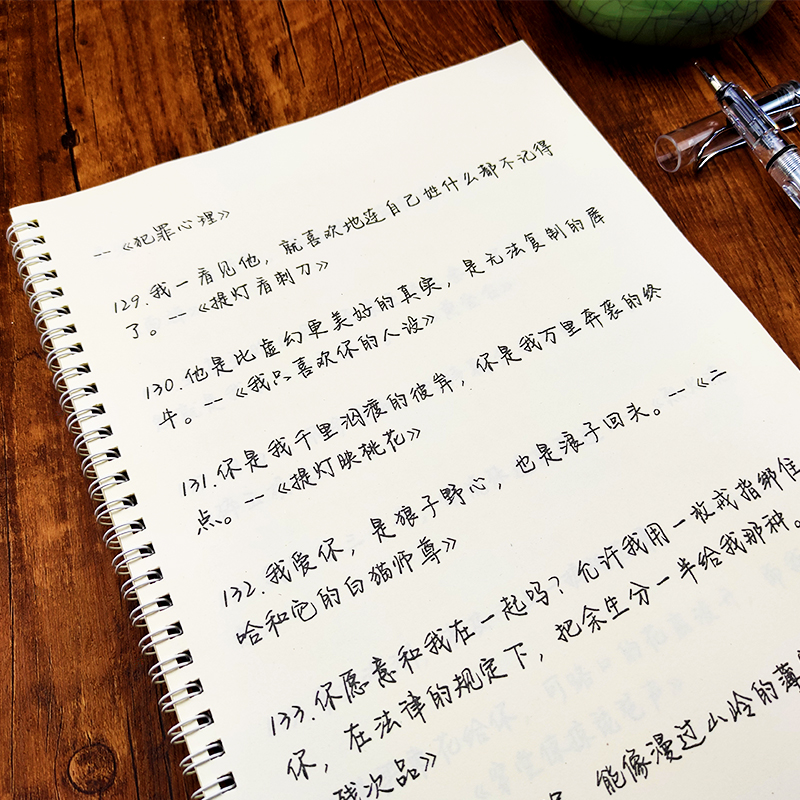 --《犯罪心理》
129.我一看见他，就喜欢地连自己姓什么都不记得
了。--《提灯看刺刀》
130.他是比虚幻更美好的真实，是无法复制的犀
牛。--《我只喜欢你的人设》
131.你是我千里泅渡的彼岸，你是我万里奔袭的终
点。--《提灯映桃花》
132.我爱你，是狼子野心，也是浪子回头。--《二
哈和它的白猫师尊》
133.你愿意和我在一起吗？允许我用一枚戒指绑住
你，在法律的规定下，把余生分一半给我那种。
残次品》
能像漫过山岭的薄